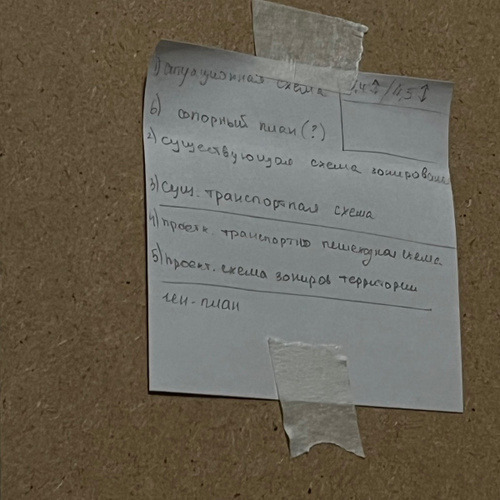 1) ситуационная схема 1,4↕/1,5↕
6) опорный план (?)
2) существующая схема зонирован
3) сущ. транспортная схема
4) проект. транспортно пешеходная схема.
5) проект. схема зониров территории
ген-план